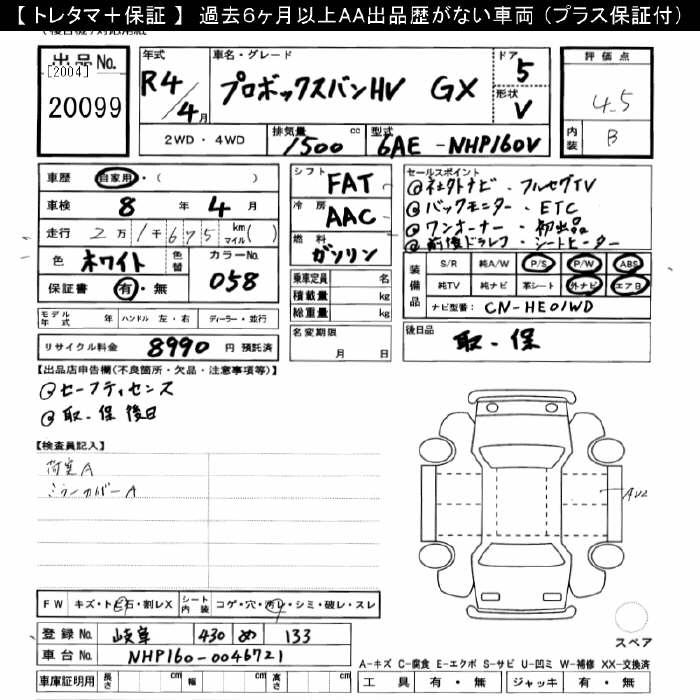 【 トレタマ＋保証 】 過去6ヶ月以上AA出品歴がない車両（プラス保証付）
出品No.
[2004]
20099
年式
R4/4月
車名・グレード
プロボックスバンHV GX
ドア
5
形状
V
評価点
4.5
内装
B
2WD ・ 4WD
排気量
1500 cc
型式
6AE -NHP160V
車歴 自家用・( )
車検 8 年 4 月
走行 2万1千675 km マイル( )
色 ホワイト 色替 カラーNo. 058
保証書 有・無
シフト FAT
冷房 AAC
燃料 ガソリン
乗車定員 名
積載量 kg
総重量 kg
名変期限
月 日
セールスポイント
@社外ナビ・フルセグTV
@バックモニター・ETC
@ワンオーナー・初出品
@前後ドラレコ・シートヒーター
装備品
S/R 純A/W P/S P/W ABS
純TV 純ナビ 革シート 外ナビ エアB
ナビ型番: CN-HE01WD
後日品
取・保
モデル年式 年 ハンドル 左・右 ディーラー・並行
リサイクル料金 8990 円 預託済
【出品店申告欄(不良箇所・欠品・注意事項等)】
@セーフティセンス
@取・保 後日
【検査員記入】
荷室A
ミラーカバーA
AU2
FW キズ・トビ石・割レX シート内装 コゲ・穴・汚レ・シミ・破レ・スレ
登録No. 岐阜 430 め 133
車台No. NHP160-0046721
車庫証明用 長さ cm 幅 cm 高さ cm
スペア
A-キズ C-腐食 E-エクボ S-サビ U-凹ミ W-補修 XX-交換済
工具 有・無 ジャッキ 有・無